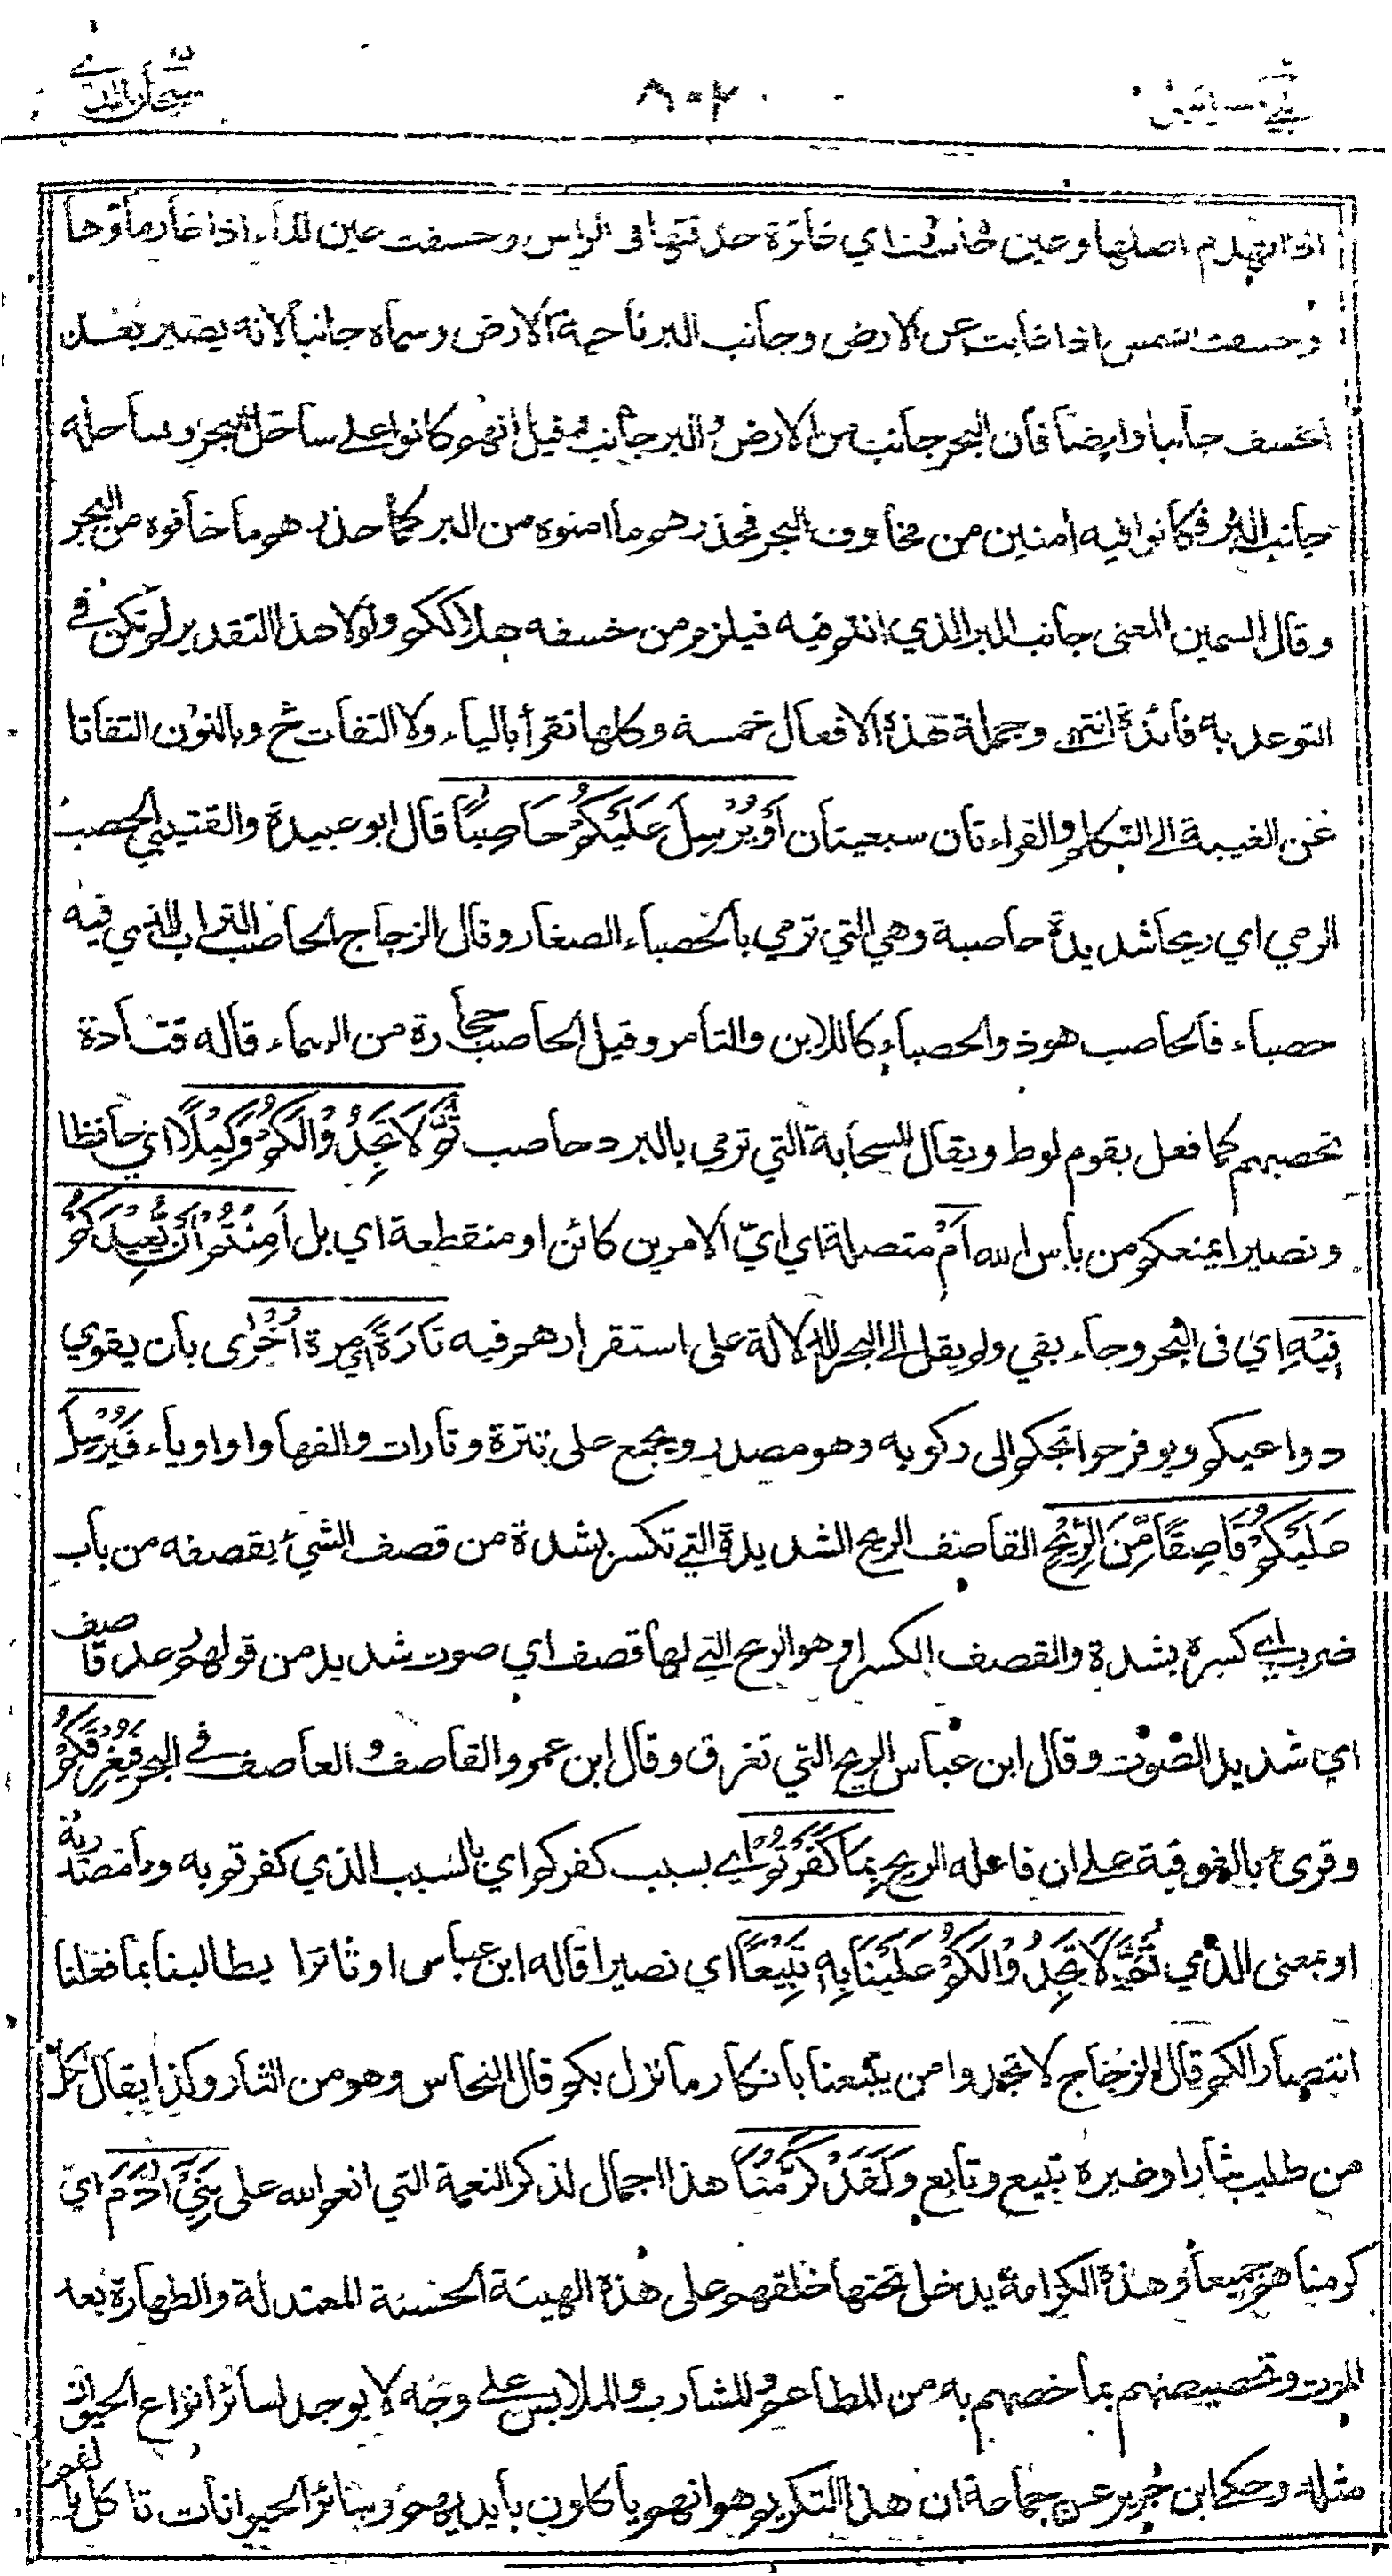 بني اسرائيل ٨٠٢ سبحان الذي
اذا انهدم اصلها وعين خاسفة اي غائرة حدقتها فى الراس وخسفت عين الماء اذا غار ماؤها
وخسفت الشمس اذا غابت عن الارض وجانب البر ناحية الارض وسماه جانبا لانه يصير بعد
الخسف جانبا وايضا فان البحر جانب من الارض والبر جانب وقيل انهم كانوا على ساحل البحر وساحله
جانب البر فكانوا فيه امنين من مخاوف البحر فحذرهم ما امنوه من البر كما حذرهم ما خافوه من البحر
وقال السمين المعنى جانب البر الذي انتم فيه فيلزم من خسفه هلاككم ولولا هذا التقدير لم تكن في
التوعد به فائدة انتهى وجملة هذه الافعال خمسة وكلها تقرأ بالياء ولا التفات ح وبالنون التفاتا
عن الغيبة الى التكلم والقراءتان سبعيتان أَوْ يُرْسِلَ عَلَيْكُمْ حَاصِبًا قال ابو عبيدة والقتيبي الحصب
الرمي اي ريحا شديدة حاصبة وهي التي ترمي بالحصباء الصغار وقال الزجاج الحاصب التراب الذي فيه
حصباء فالحاصب هو ذو الحصباء كاللابن والتامر وقيل الحاصب حجارة من السماء قاله قتادة
تحصبهم كما فعل بقوم لوط ويقال للسحابة التي ترمي بالبرد حاصب ثُمَّ لَا تَجِدُوْا لَكُمْ وَكِيْلًا اي حافظا
ونصيرا يمنعكم من بأس الله اَمْ متصلة اي ايّ الامرين كائن او منقطعة اي بل اَمِنْتُمْ اَنْ يُّعِيْدَكُمْ
فِيْهِ اي فى البحر وجاء بفي ولم يقل الى البحر للدلالة على استقرارهم فيه تَارَةً اي مرة اُخْرٰى بان يقوي
دواعيكم ويوفر حوائجكم الى ركوبه وهو مصدر ويجمع على تترة وتارات والفها واو او ياء فَيُرْسِلَ
عَلَيْكُمْ قَاصِفًا مِّنَ الرِّيْحِ القاصف الريح الشديدة التي تكسر بشدة من قصف الشيء يقصفه من باب
ضرب اي كسره بشدة والقصف الكسر او هو الريح التي لها قصف اي صوت شديد من قولهم رعد قاصف
اي شديد الصوت وقال ابن عباس الريح التي تغرق وقال ابن عمرو القاصف والعاصف في البحر فَيُغْرِقَكُمْ
وقرئ بالفوقية على ان فاعله الريح بِمَا كَفَرْتُمْ اي بسبب كفركم اي بالسبب الذي كفرتم به وما مصدرية
او بمعنى الذي ثُمَّ لَا تَجِدُوْا لَكُمْ عَلَيْنَا بِهٖ تَبِيْعًا اي نصيرا قاله ابن عباس او ثائرا يطالبنا بما فعلنا
انتصارا لكم قال الزجاج لا تجدوا من يتبعنا بانكار ما نزل بكم قال النحاس وهو من الثار وكذا يقال لكل
من طلب بثار او غيره تبيع وتابع وَلَقَدْ كَرَّمْنَا هذا اجمال لذكر النعمة التي انعم الله على بَنِيْٓ اٰدَمَ اي
كرمناهم جميعا وهذه الكرامة يدخل تحتها خلقهم على هذه الهيئة الحسنة المعتدلة والطهارة بعد
الموت وتخصيصهم بما خصهم به من المطاعم والمشارب والملابس على وجه لا يوجد لسائر انواع الحيوان
مثله وحكى ابن جرير عن جماعة ان هذا التكريم هو انهم ياكلون بايديهم وسائر الحيوانات تاكل بالفم